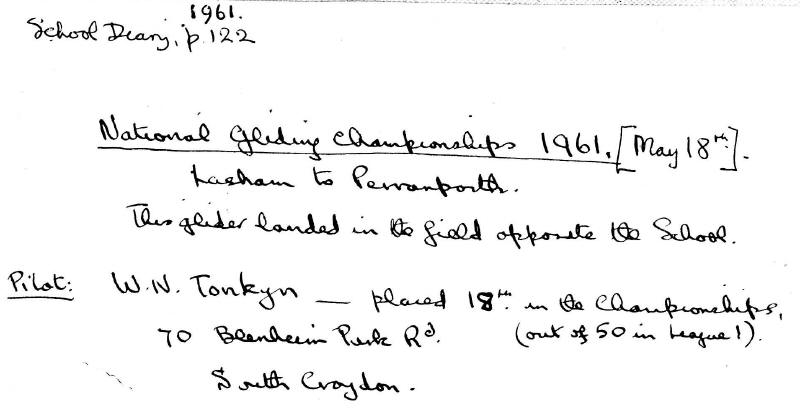 1961.
School Diary, p.122
National Gliding Championships 1961. [May 18th].
Lasham to Perranporth.
This glider landed in the field opposite the School.
Pilot: W.N. Tonkyn — placed 18th in the Championships,
70 Blenheim Park Rd. (out of 50 in League 1).
South Croydon.